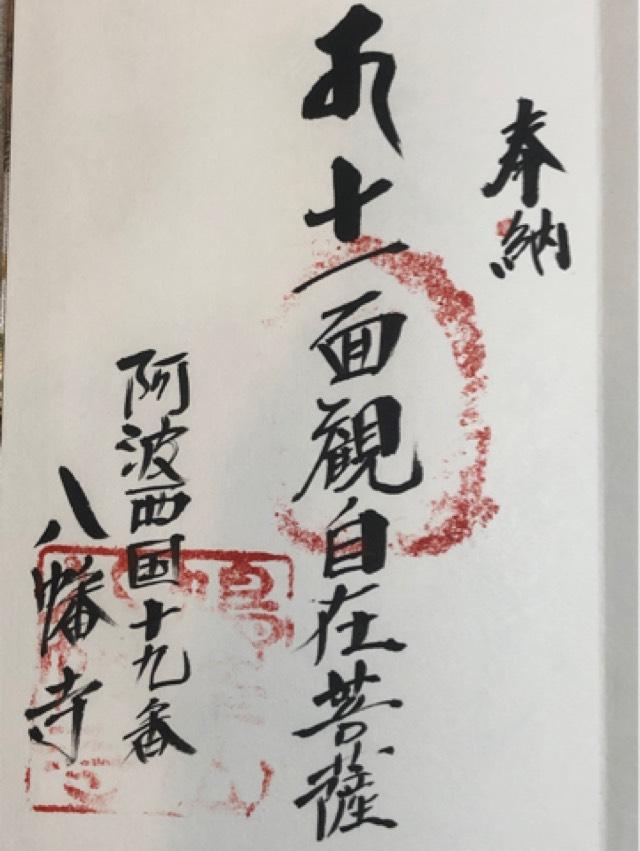 奉納
十一面観自在菩薩
阿波西国十九番
八幡寺